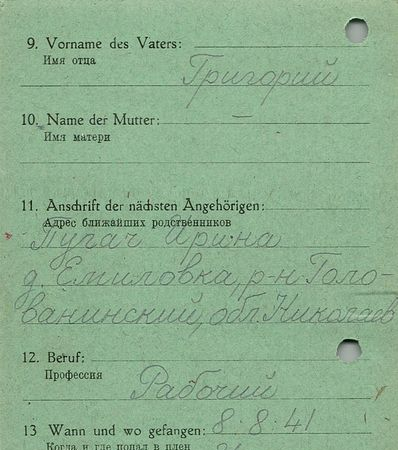 9. Vorname des Vaters:
Имя отца
Григорий
10. Name der Mutter: —
Имя матери
11. Anschrift der nächsten Angehörigen:
Адрес ближайших родственников
Пугач Ирина
д. Емиловка, р-н Голо-
ванинский, обл. Николаев
12. Beruf:
Профессия
Рабочий
13 Wann und wo gefangen: 8.8.41
Когда и где попал в плен